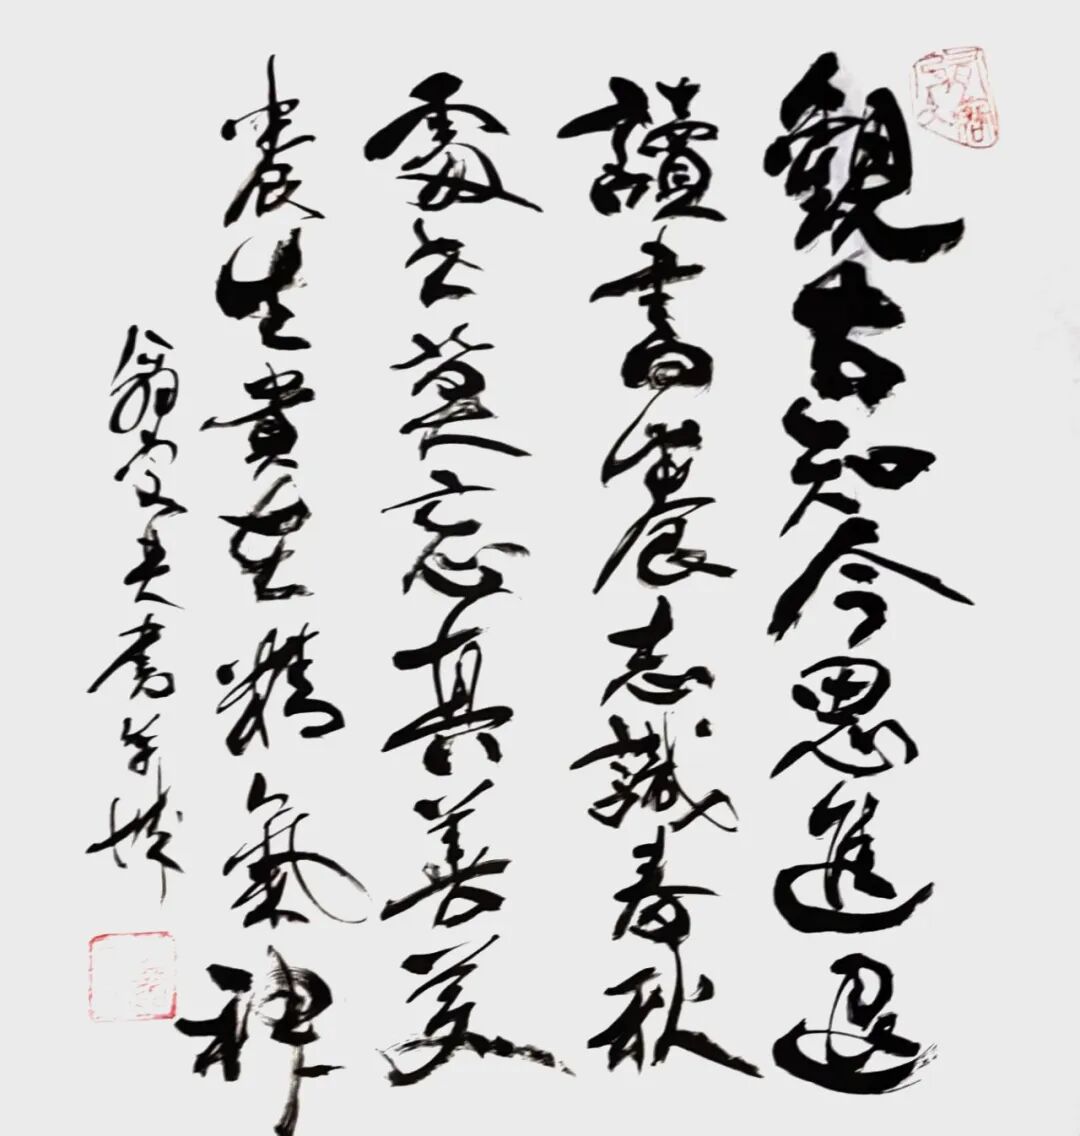 觀古知今思進退
讀書養志識春秋
處世莫忘真善美
養生貴在精氣神
翁夫書羊城